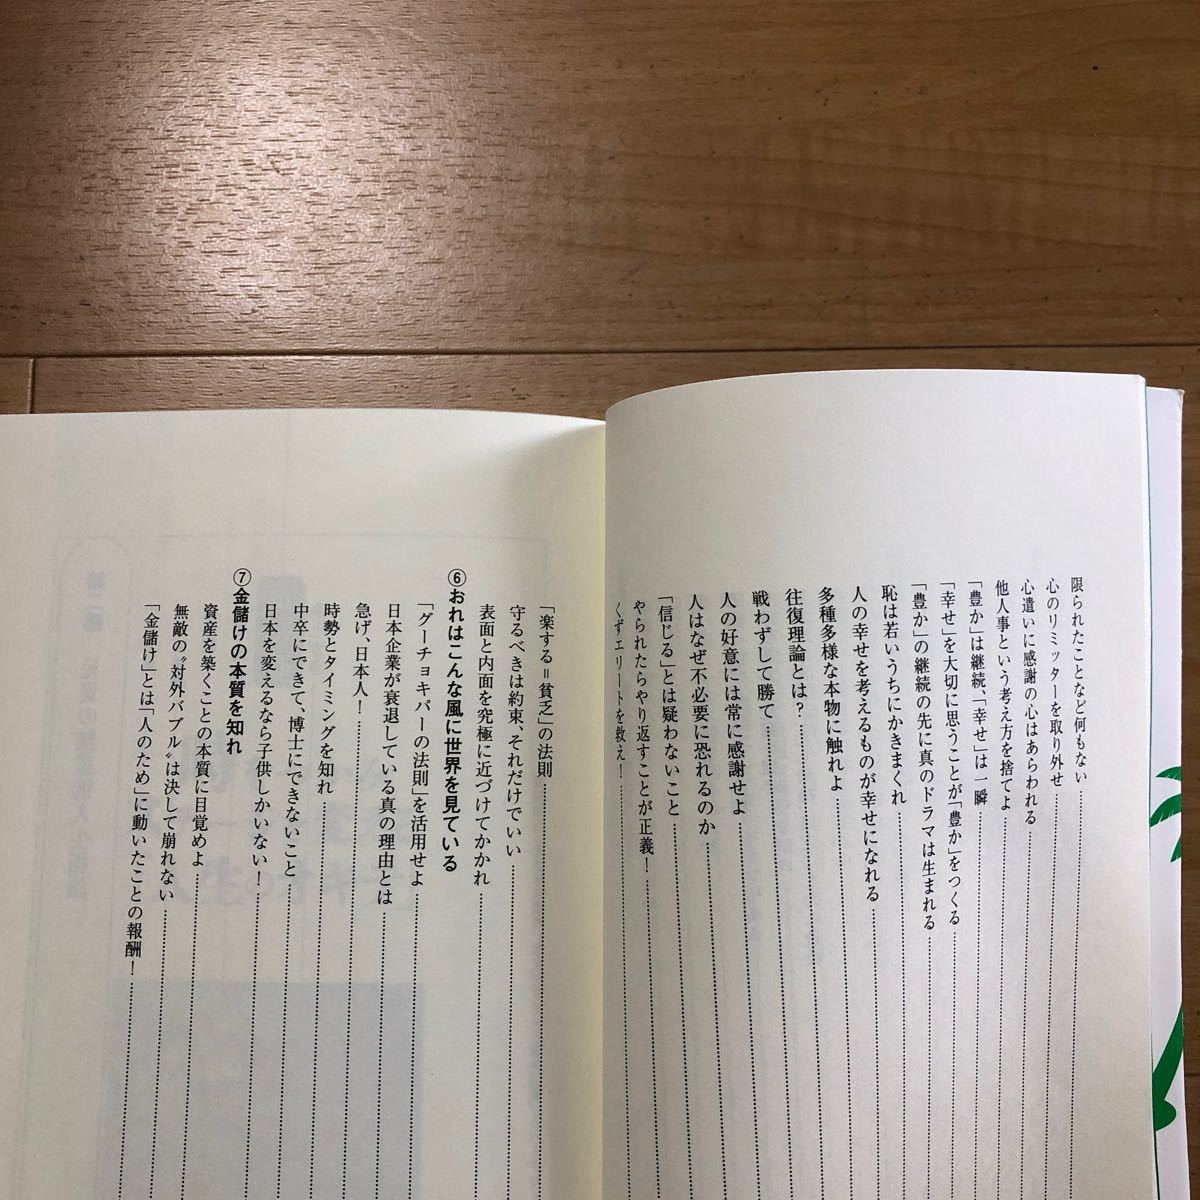 限られたことなど何もない
心のリミッターを取り外せ
心遣いに感謝の心はあらわれる
他人事という考え方を捨てよ
「豊か」は継続、「幸せ」は一瞬
「幸せ」を大切に思うことが「豊か」をつくる
「豊か」の継続の先に真のドラマは生まれる
恥は若いうちにかきまくれ
人の幸せを考えるものが幸せになれる
多種多様な本物に触れよ
往復理論とは？
戦わずして勝て
人の好意には常に感謝せよ
人はなぜ不必要に恐れるのか
「信じる」とは疑わないこと
やられたらやり返すことが正義！
くずエリートを救え！
「楽する＝貧乏」の法則
守るべきは約束、それだけでいい
表面と内面を究極に近づけてかかれ
⑥おれはこんな風に世界を見ている
「グーチョキパーの法則」を活用せよ
日本企業が衰退している真の理由とは
急げ、日本人！
時勢とタイミングを知れ
中卒にできて、博士にできないこと
日本を変えるなら子供しかいない！
⑦金儲けの本質を知れ
資産を築くことの本質に目覚めよ
無敵の〝対外バブル〟は決して崩れない
「金儲け」とは「人のため」に動いたことの報酬！